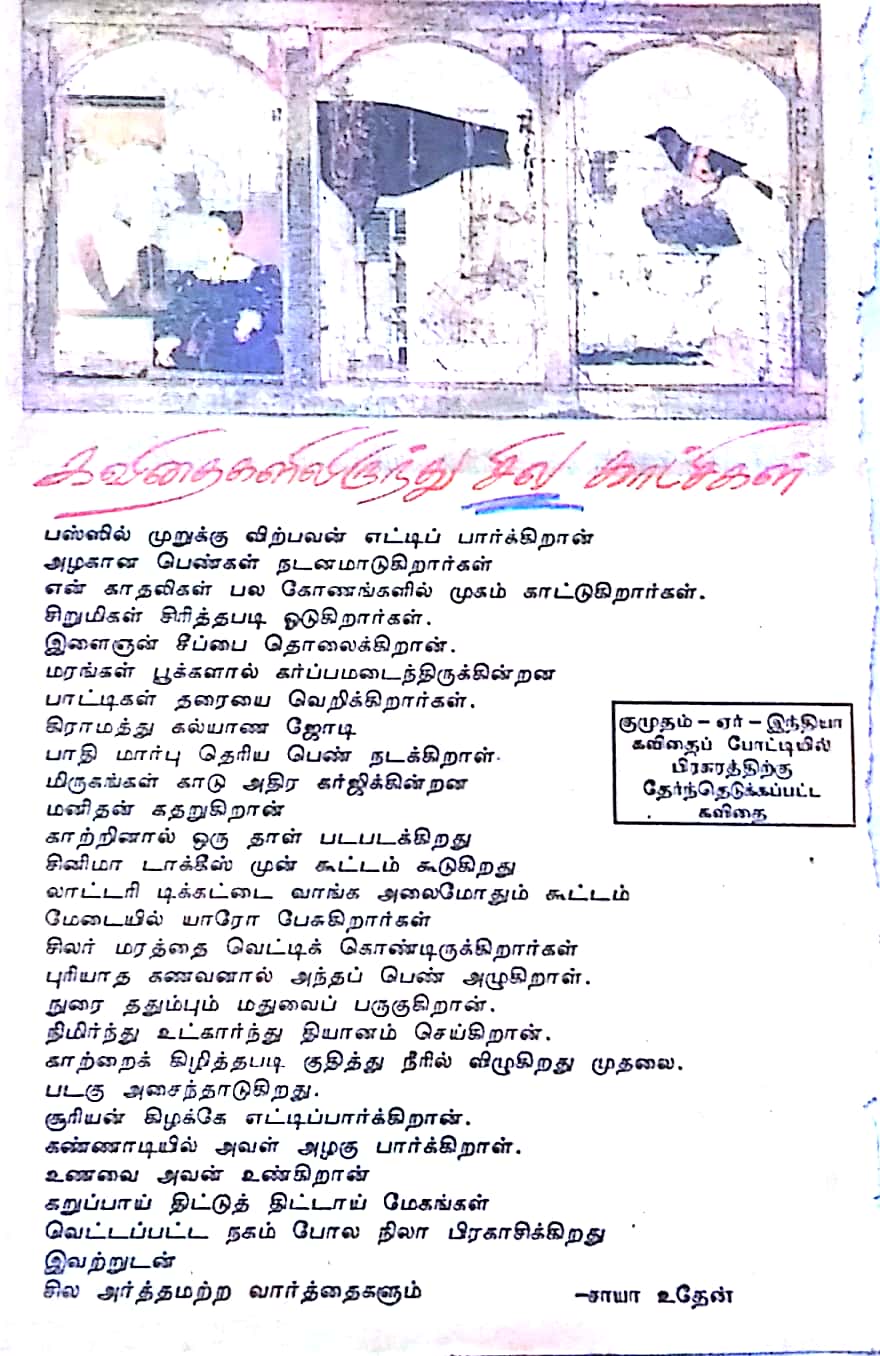 கவிதைகளிலிருந்து சில காட்சிகள்
பஸ்ஸில் முறுக்கு விற்பவன் எட்டிப் பார்க்கிறான்
அழகான பெண்கள் நடனமாடுகிறார்கள்
என் காதலிகள் பல கோணங்களில் முகம் காட்டுகிறார்கள்.
சிறுமிகள் சிரித்தபடி ஓடுகிறார்கள்.
இளைஞன் சீப்பை தொலைக்கிறான்.
மரங்கள் பூக்களால் கர்ப்பமடைந்திருக்கின்றன
பாட்டிகள் தரையை வெறிக்கிறார்கள்.
கிராமத்து கல்யாண ஜோடி
பாதி மார்பு தெரிய பெண் நடக்கிறாள்.
மிருகங்கள் காடு அதிர கர்ஜிக்கின்றன
மனிதன் கதறுகிறான்
காற்றினால் ஒரு தாள் படபடக்கிறது
சினிமா டாக்கீஸ் முன் கூட்டம் கூடுகிறது
லாட்டரி டிக்கட்டை வாங்க அலைமோதும் கூட்டம்
மேடையில் யாரோ பேசுகிறார்கள்
சிலர் மரத்தை வெட்டிக் கொண்டிருக்கிறார்கள்
புரியாத கணவனால் அந்தப் பெண் அழுகிறாள்.
நுரை ததும்பும் மதுவைப் பருகுகிறான்.
நிமிர்ந்து உட்கார்ந்து தியானம் செய்கிறான்.
காற்றைக் கிழித்தபடி குதித்து நீரில் விழுகிறது முதலை.
படகு அசைந்தாடுகிறது.
சூரியன் கிழக்கே எட்டிப்பார்க்கிறான்.
கண்ணாடியில் அவள் அழகு பார்க்கிறாள்.
உணவை அவன் உண்கிறான்
கறுப்பாய் திட்டுத் திட்டாய் மேகங்கள்
வெட்டப்பட்ட நகம் போல நிலா பிரகாசிக்கிறது
இவற்றுடன்
சில அர்த்தமற்ற வார்த்தைகளும்
–சாயா உதேன்
குமுதம் – ஏர் – இந்தியா
கவிதைப் போட்டியில்
பிரசுரத்திற்கு
தேர்ந்தெடுக்கப்பட்ட
கவிதை